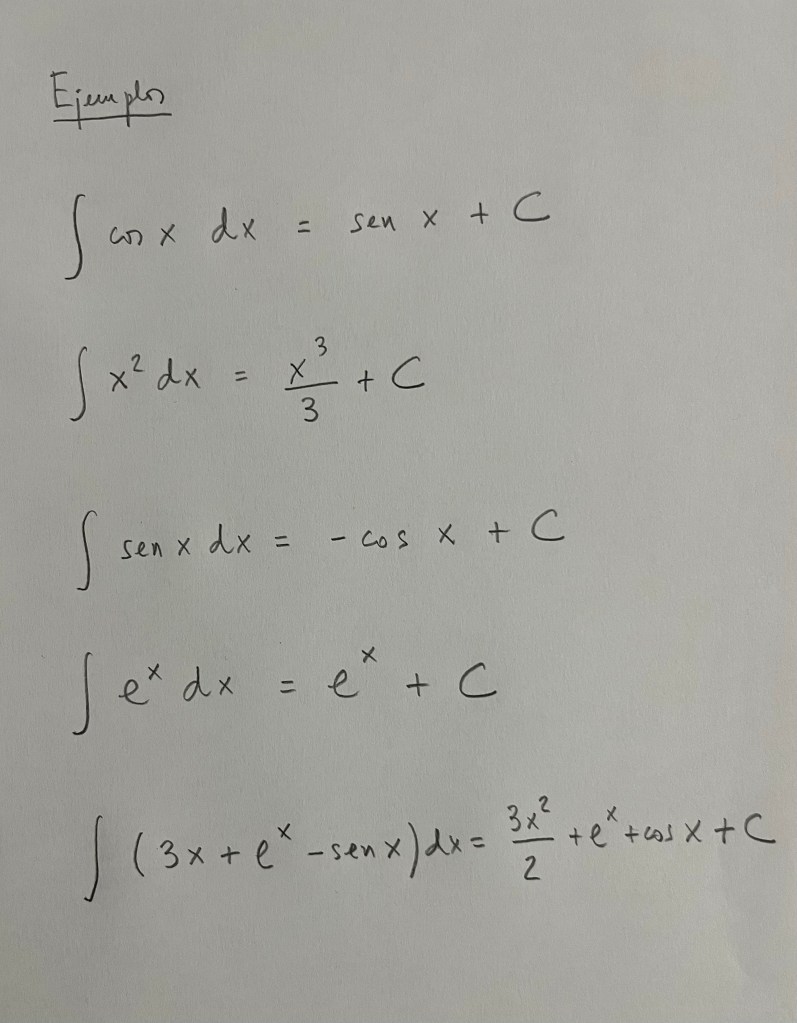 Ejemplos
∫ cos x dx = sen x + C
∫ x² dx = x³/3 + C
∫ sen x dx = - cos x + C
∫ eˣ dx = eˣ + C
∫ (3x + eˣ - sen x) dx = 3x²/2 + eˣ + cos x + C